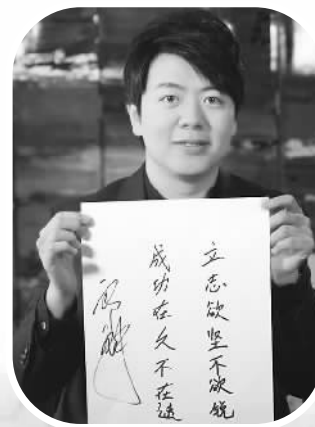 立志欲坚不欲锐
成功在久不在速